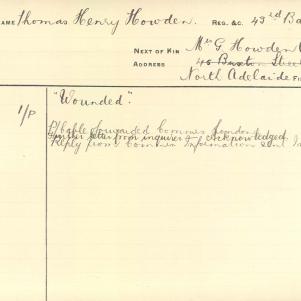 NAME Thomas Henry Howden. REG. &C. 43rd Ba
NEXT OF KIN Mr G Howden
ADDRESS 46 Buxton Street
North Adelaide
1/P "Wounded".
forwarded London
letter from inquirer acknowledged
Reply from Information sent